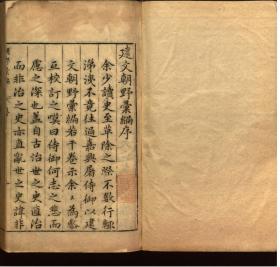 建文朝野彙編序
余少讀史至革除之際不數行輒
涕泫不竟徃過嘉興屠侍御以建
文朝野彙編若干卷示余余為
互校訂之嘆曰侍御何志之悲而
慮之深也蓋自古治世之史直治
而非治之史亦直亂世之史諱非